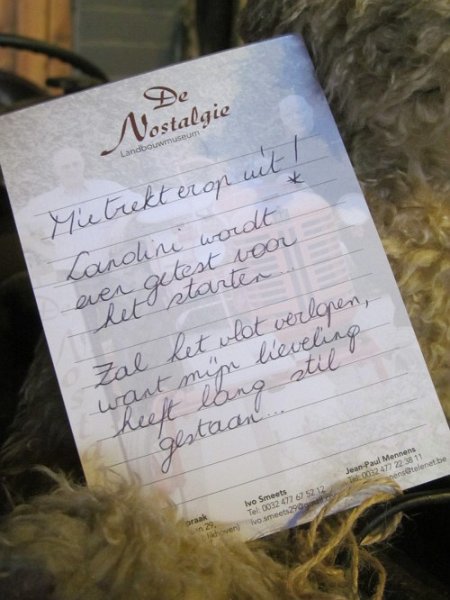 De
Nostalgie
Landbouwmuseum
Mie trekt er op uit!
*
Landini wordt
even getest voor
het starten...
Zal het vlot verlopen,
want mijn lieveling
heeft lang stil
gestaan...
Ivo Smeets
Tel: 0032 477 67 52 12
Jean-Paul Mennens
Tel: 0032 477 22 38 11